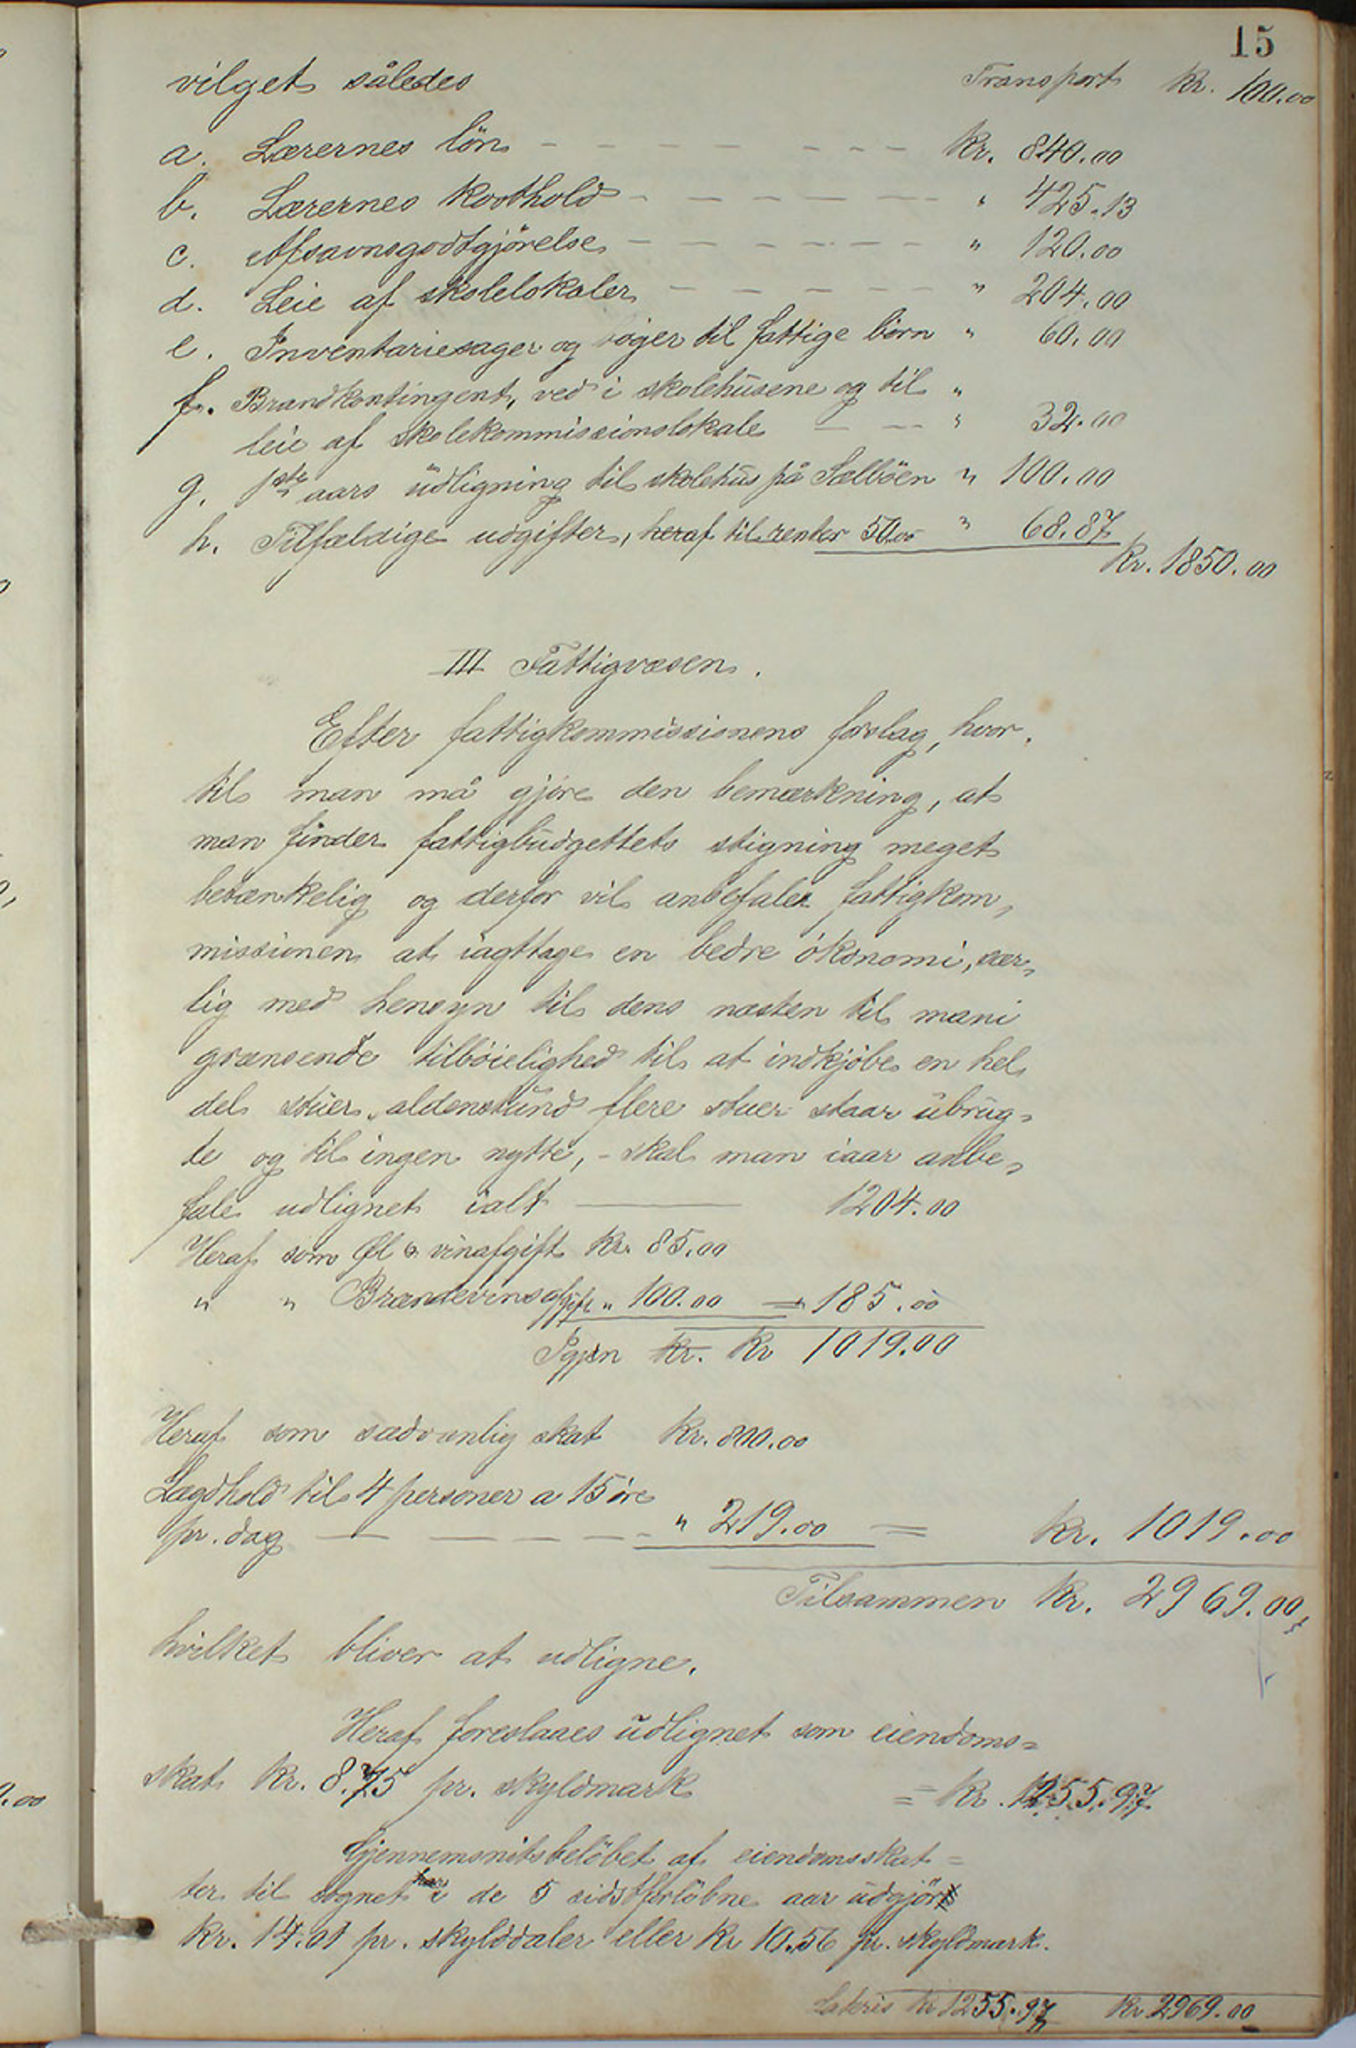 15
vilget således Transport kr. 100.00
a. Lærernes løn - - - - - - - kr. 840.00
b. Lærernes kosthold - - - - - - - " 425.13
c. Afsavnsgodtgjörelse - - - - - - " 120.00
d. Leie af skolelokaler - - - - - - " 204.00
e. Inventariesager og bøger til fattige börn " 60.00
f. Brandkontingent, ved i skolehusene og til "
leie af skolekommissionslokale - - - " 32.00
g. 1ste aars üdligning til skolehus på Sælböen " 100.00
h. Tilfældige udgifter, heraf til renter 50.00 " 68.87
kr. 1850.00
III Fattigvæsen.
Efter fattigkommissionens forslag, hvor-
til man må gjøre den bemærkning, at
man finder fattigbüdgettets stigning meget
betænkelig og derfor vil anbefale fattigkom-
missionen at iagttage en bedre ökonomi, sær-
lig med hensyn til dens næsten til mani
grænsende tilböielighed til at indkjöbe en hel
del stuer, aldenstund flere stuer staar übrug-
te og til ingen nytte, - skal man iaar anbe-
fale udlignet ialt ——— 1204.00
Heraf som Øl & vinafgift kr. 85.00
" " Brændevinsafgift " 100.00 = " 185.00
Igjen kr. kr 1019.00
Heraf som sædvanlig skat kr. 800.00
Lægdhold til 4 personer a 15 öre
pr. dag — - - - - - " 219.00 = kr. 1019.00
Tilsammen kr. 2969.00,
hvilket bliver at udligne.
Heraf foreslaaes üdlignet som eiendoms=
skat kr. 8.75 pr. skyldmark = kr. 1255.97
Gjennemsnitsbelöbet af eiendomsskat=
ter til sognet her i de 5 sidstforlöbne aar üdgjör
kr. 14.01 pr. skylddaler eller kr 10.56 pr. skyldmark.
Lateris kr 1255.97 kr 2969.00